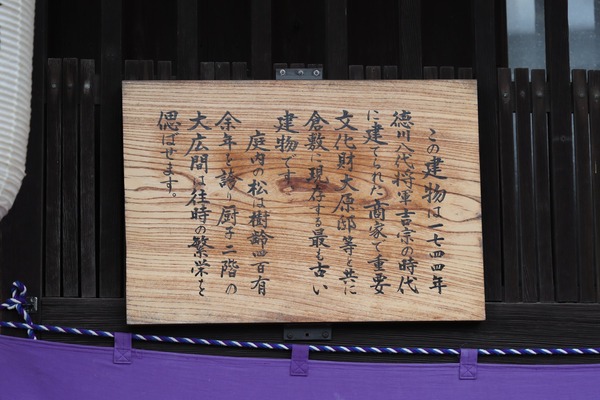 この建物は一七四四年
徳川八代将軍吉宗の時代
に建てられた商家で重要
文化財大原邸等と共に
倉敷に現存する最も古い
建物です。
庭内の松は樹齢四百有
余年を誇り厨子二階の
大広間は往時の繁栄を
偲ばせます。